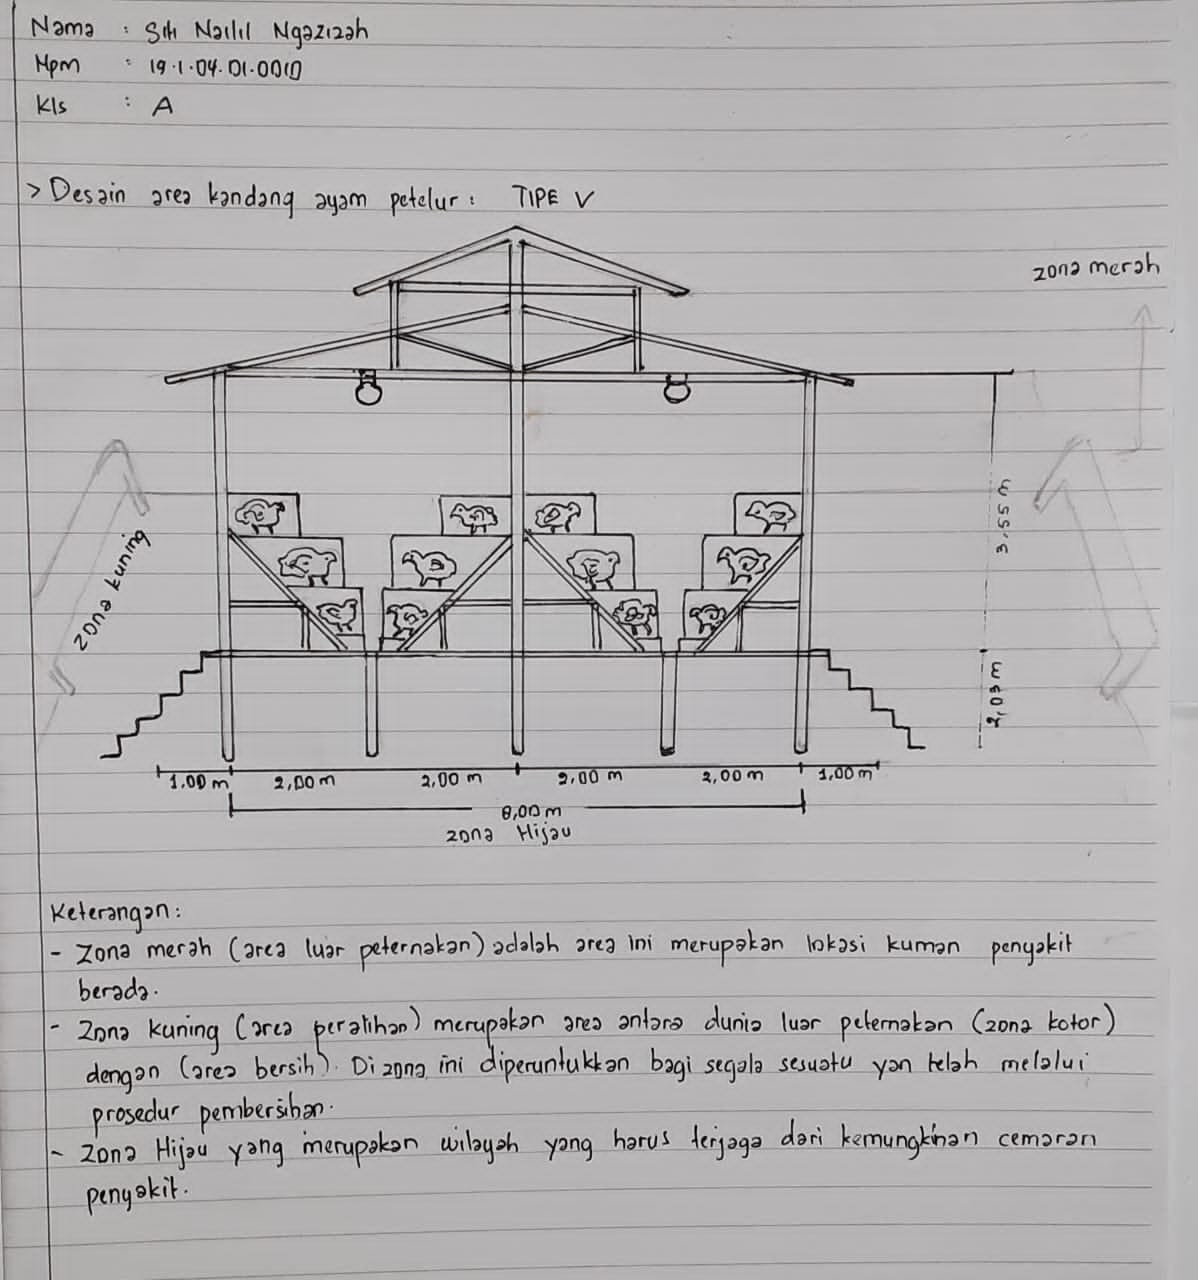 Nama : Siti Nailil Ngazizah
Npm : 19.1.04.01.0010
Kls : A
> Desain area kandang ayam petelur : TIPE V
zona merah
zona kuning
3,55 m
2,03 m
1,00 m 2,00 m 2,00 m 2,00 m 2,00 m 1,00 m
8,00 m
zona Hijau
Keterangan :
- Zona merah (area luar peternakan) adalah area ini merupakan lokasi kuman penyakit
berada.
- Zona kuning (area peralihan) merupakan area antara dunia luar peternakan (zona kotor)
dengan (area bersih). Di zona ini diperuntukkan bagi segala sesuatu yan telah melalui
prosedur pembersihan.
- Zona Hijau yang merupakan wilayah yang harus terjaga dari kemungkinan cemaran
penyakit.